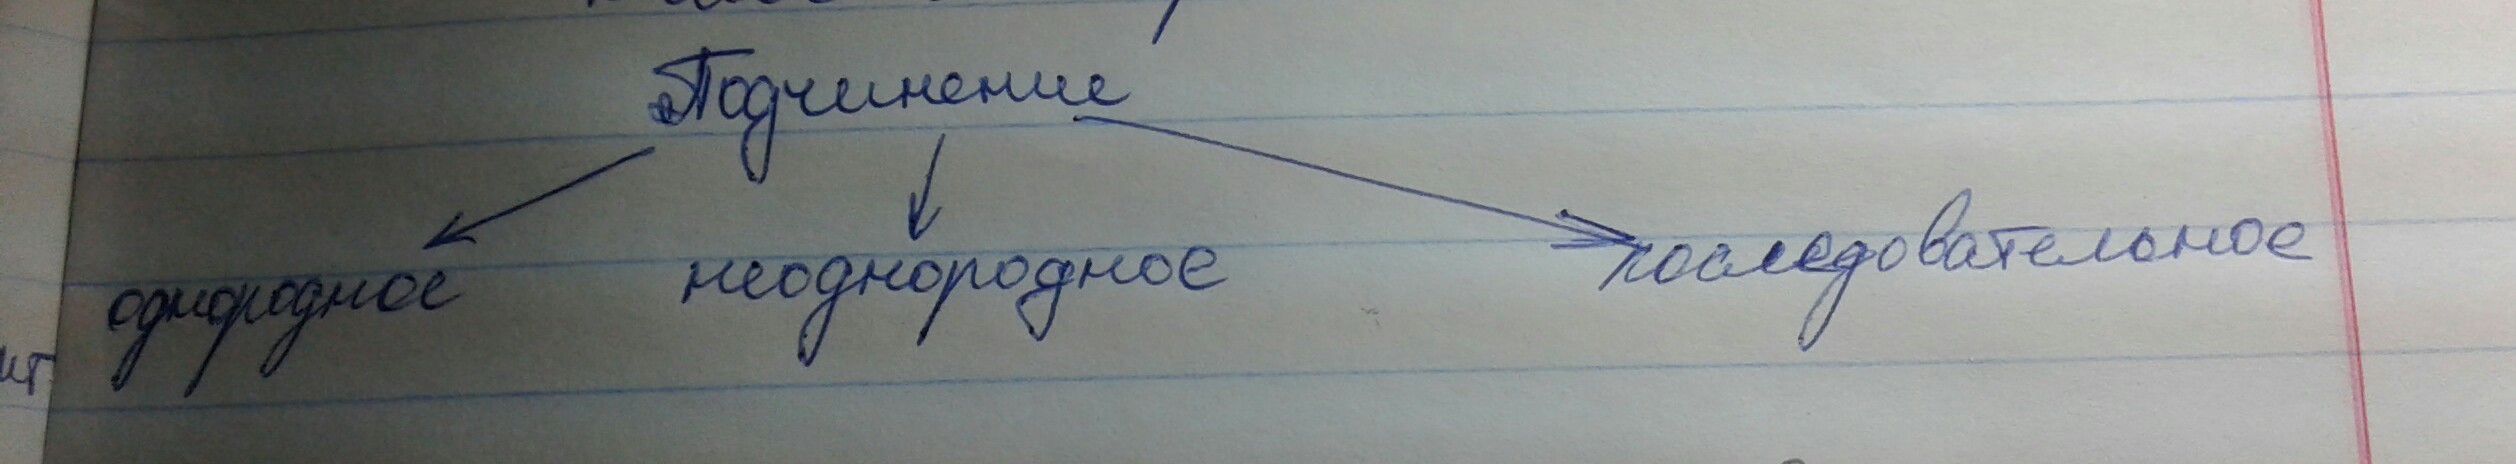 Подчинение
однородное неоднородное последовательное